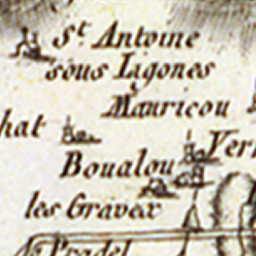 St. Antoine
sous Lagones
Mauricou
hat
Ver
Boualou
les Gravex
Pradel